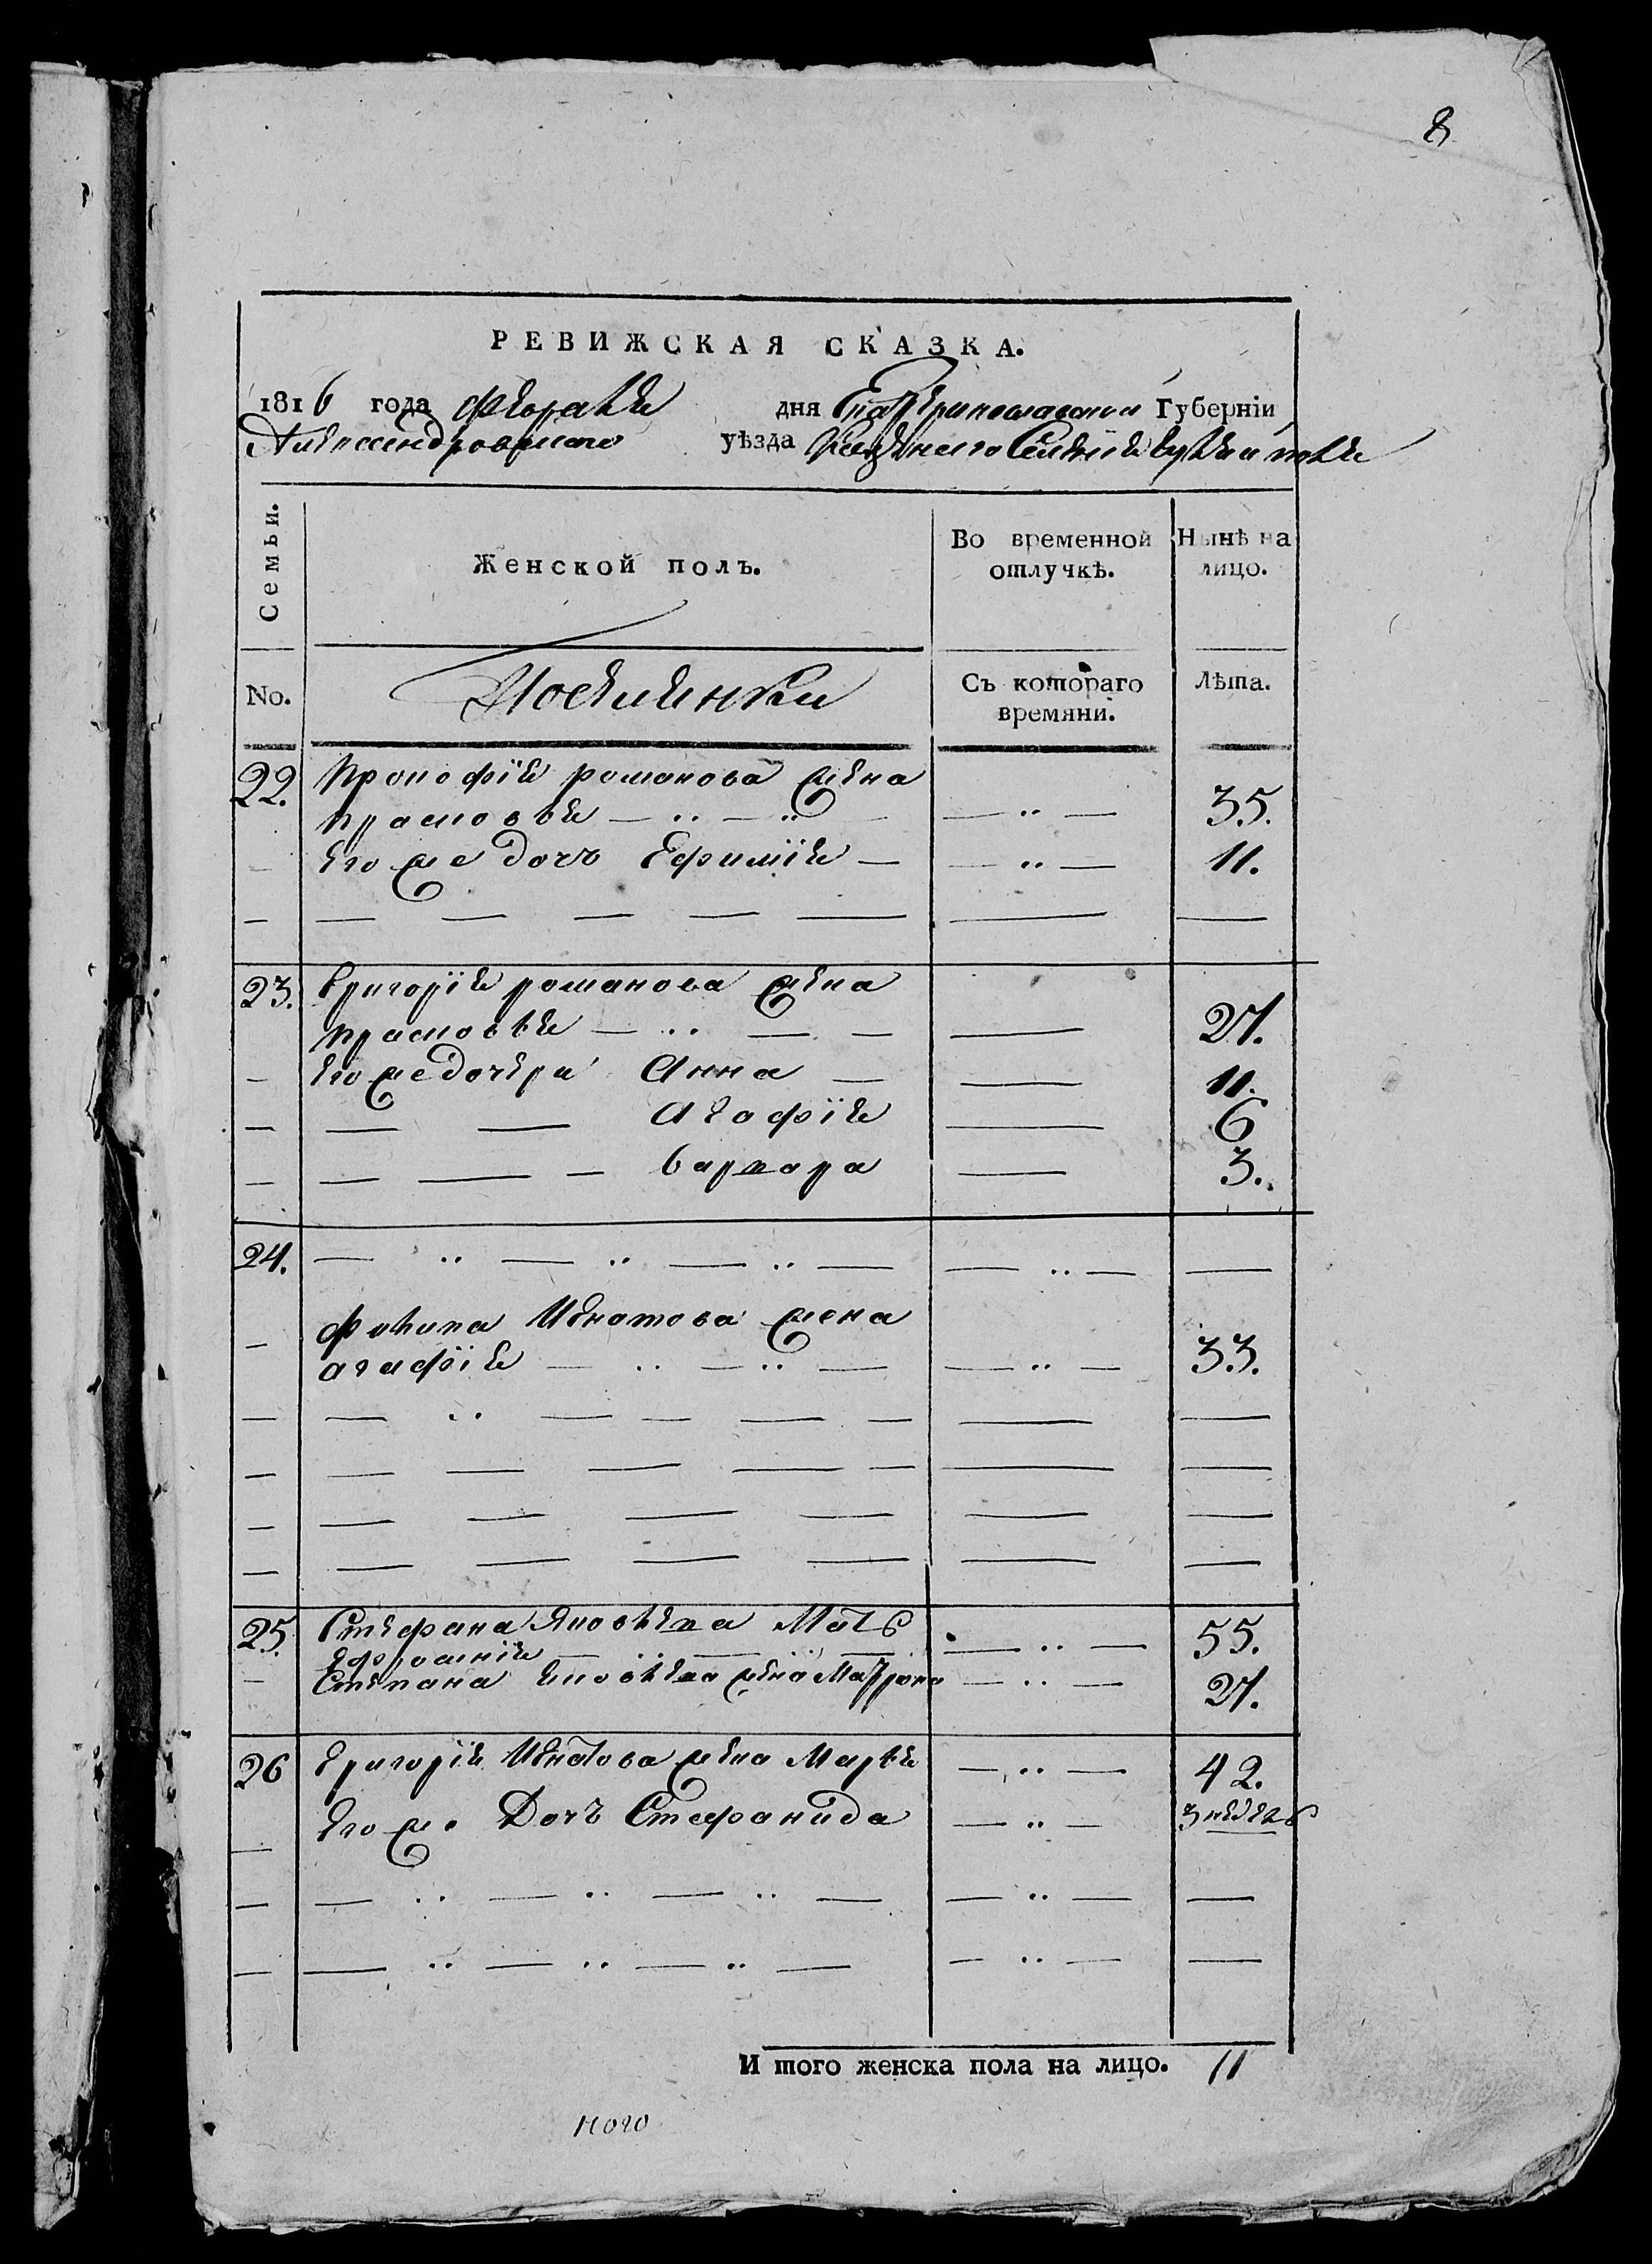 8
РЕВИЖСКАЯ СКАЗКА.
1816 года Февраля дня Екатеринославской Губерніи
Александровского уѣзда Казенного Селенія
Семьи. Женской полъ. Во временной отлучкѣ. Нынѣ на лицо.
No. Поселянки Съ котораго времяни. Лѣта.
22. Прокофія романова жена
прасковья — .. — .. — — .. — 35.
его же дочъ Ефимія — — .. — 11.
23. Григорія романова жена
прасковья — .. — — — 27.
его же дочери Анна — — 11.
— — Агафія — 6
— — — варвара — 3.
24. — .. — .. — .. — — .. — —
филипа Игнатова жена
агафія — .. — .. — — .. — 33.
25. Стефана Яковлева Мать — .. — 55.
Ефросинія
Степана Яковлева жена Матрона — .. — 27.
26 Григорія Игнатова жена Марья — .. — 42.
его же Дочъ Стефанида — .. — 3 недель
И того женска пола на лицо. 11
ного